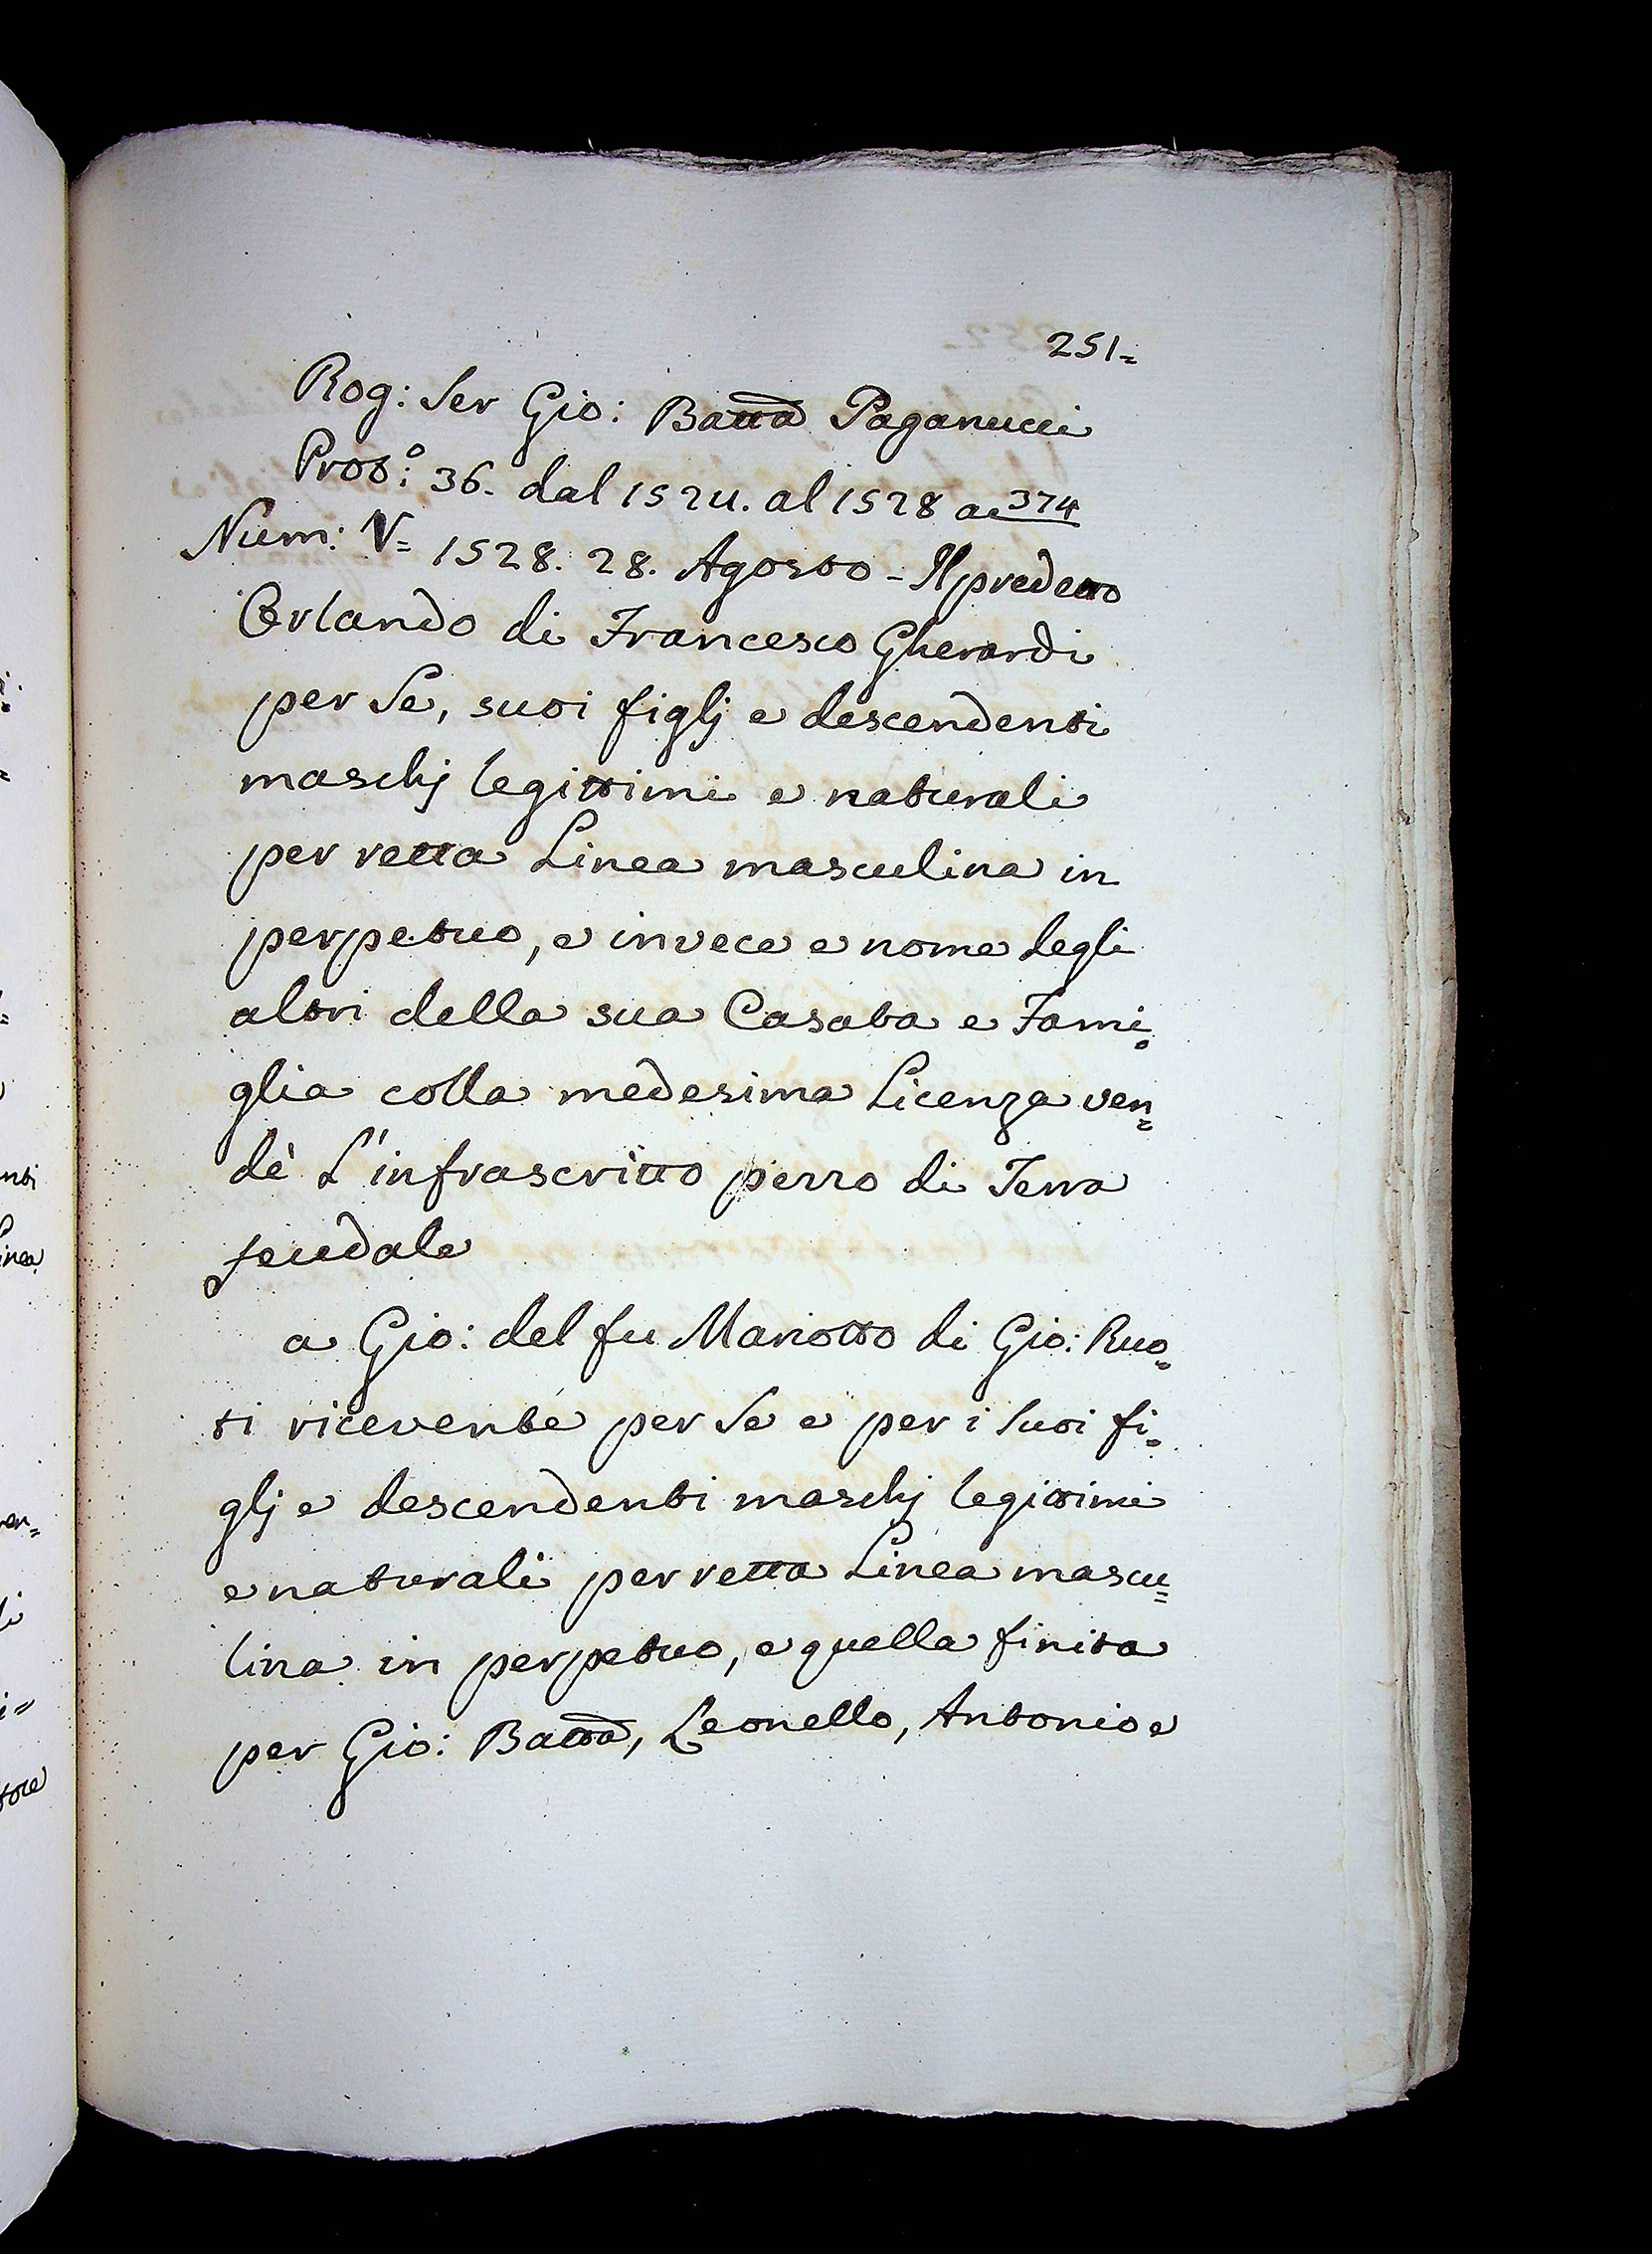 251=
Rog: Ser Gio: Batta Paganucci
Prot:º 36. dal 1524. al 1528 a 374
Num: V= 1528. 28. Agosto - Il predetto
Orlando di Francesco Gherardi
per Se, suoi figlj e descendenti
maschj legittimi e naturali
per retta Linea masculina in
perpetuo, e invece e nome degli
altri della sua Casata e Fami=
glia colla medesima Licenza ven=
dè L'infrascritto pezzo di Terra
feudale
a Gio: del fu Mariotto di Gio: Ruo=
ti ricevente per Se e per i Suoi fi=
glj e descendenti maschj legittimi
e naturali per retta Linea mascu=
lina in perpetuo, e quella finita
per Gio: Batta, Leonello, Antonio e